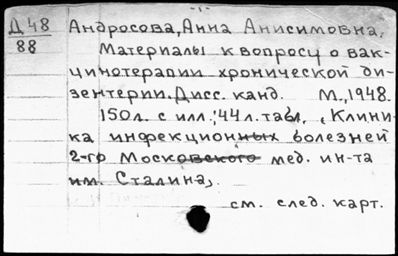 - 1 -
Д 48 Андросова, Анна Анисимовна.
88 Материалы к вопросу о вак-
цинотерапии хронической ди-
зентерии. Дисс. канд. М., 1948.
150 л. с илл.; 44 л. табл. (Клини-
ка инфекционных болезней
2-го Московского мед. ин-та
им. Сталина).
см. след. карт.